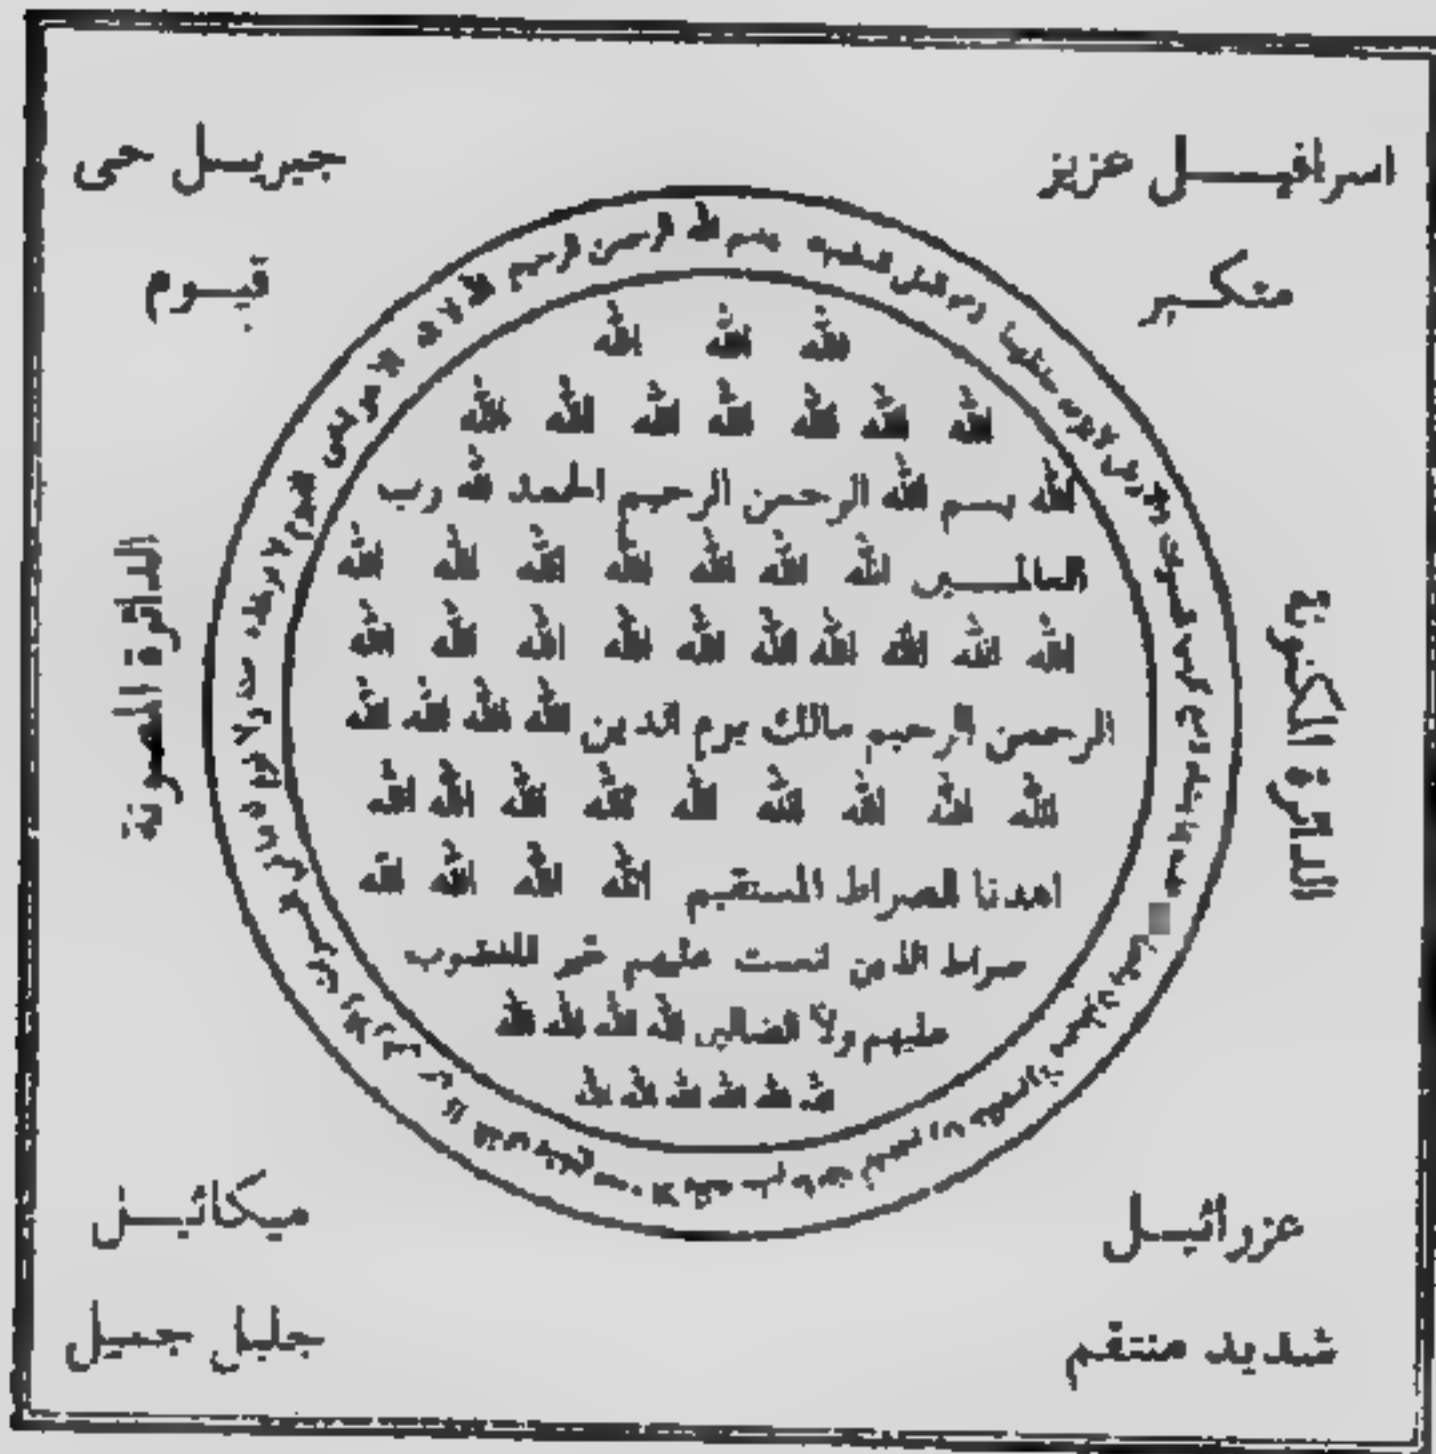 اسرافيل عزيز
متكبر
جبريل حى
قيوم
الدائرة المكنونة
الدائرة المصونة
بسم الله الرحمن الرحيم الله لا اله الا هو الحى القيوم لا تأخذه سنة ولا نوم
الله الله الله
الله الله الله الله الله الله الله
الله بسم الله الرحمن الرحيم الحمد لله رب
العالمين الله الله الله الله الله الله الله
الله الله الله الله الله الله الله الله الله الله
الرحمن الرحيم مالك يوم الدين الله الله الله الله
الله الله الله الله الله الله الله الله الله
اهدنا الصراط المستقيم الله الله الله الله
صراط الذين انعمت عليهم غير المغضوب
عليهم ولا الضالين الله الله الله الله
الله الله الله الله الله الله
عزرائيل
شديد منتقم
ميكائيل
جليل جميل